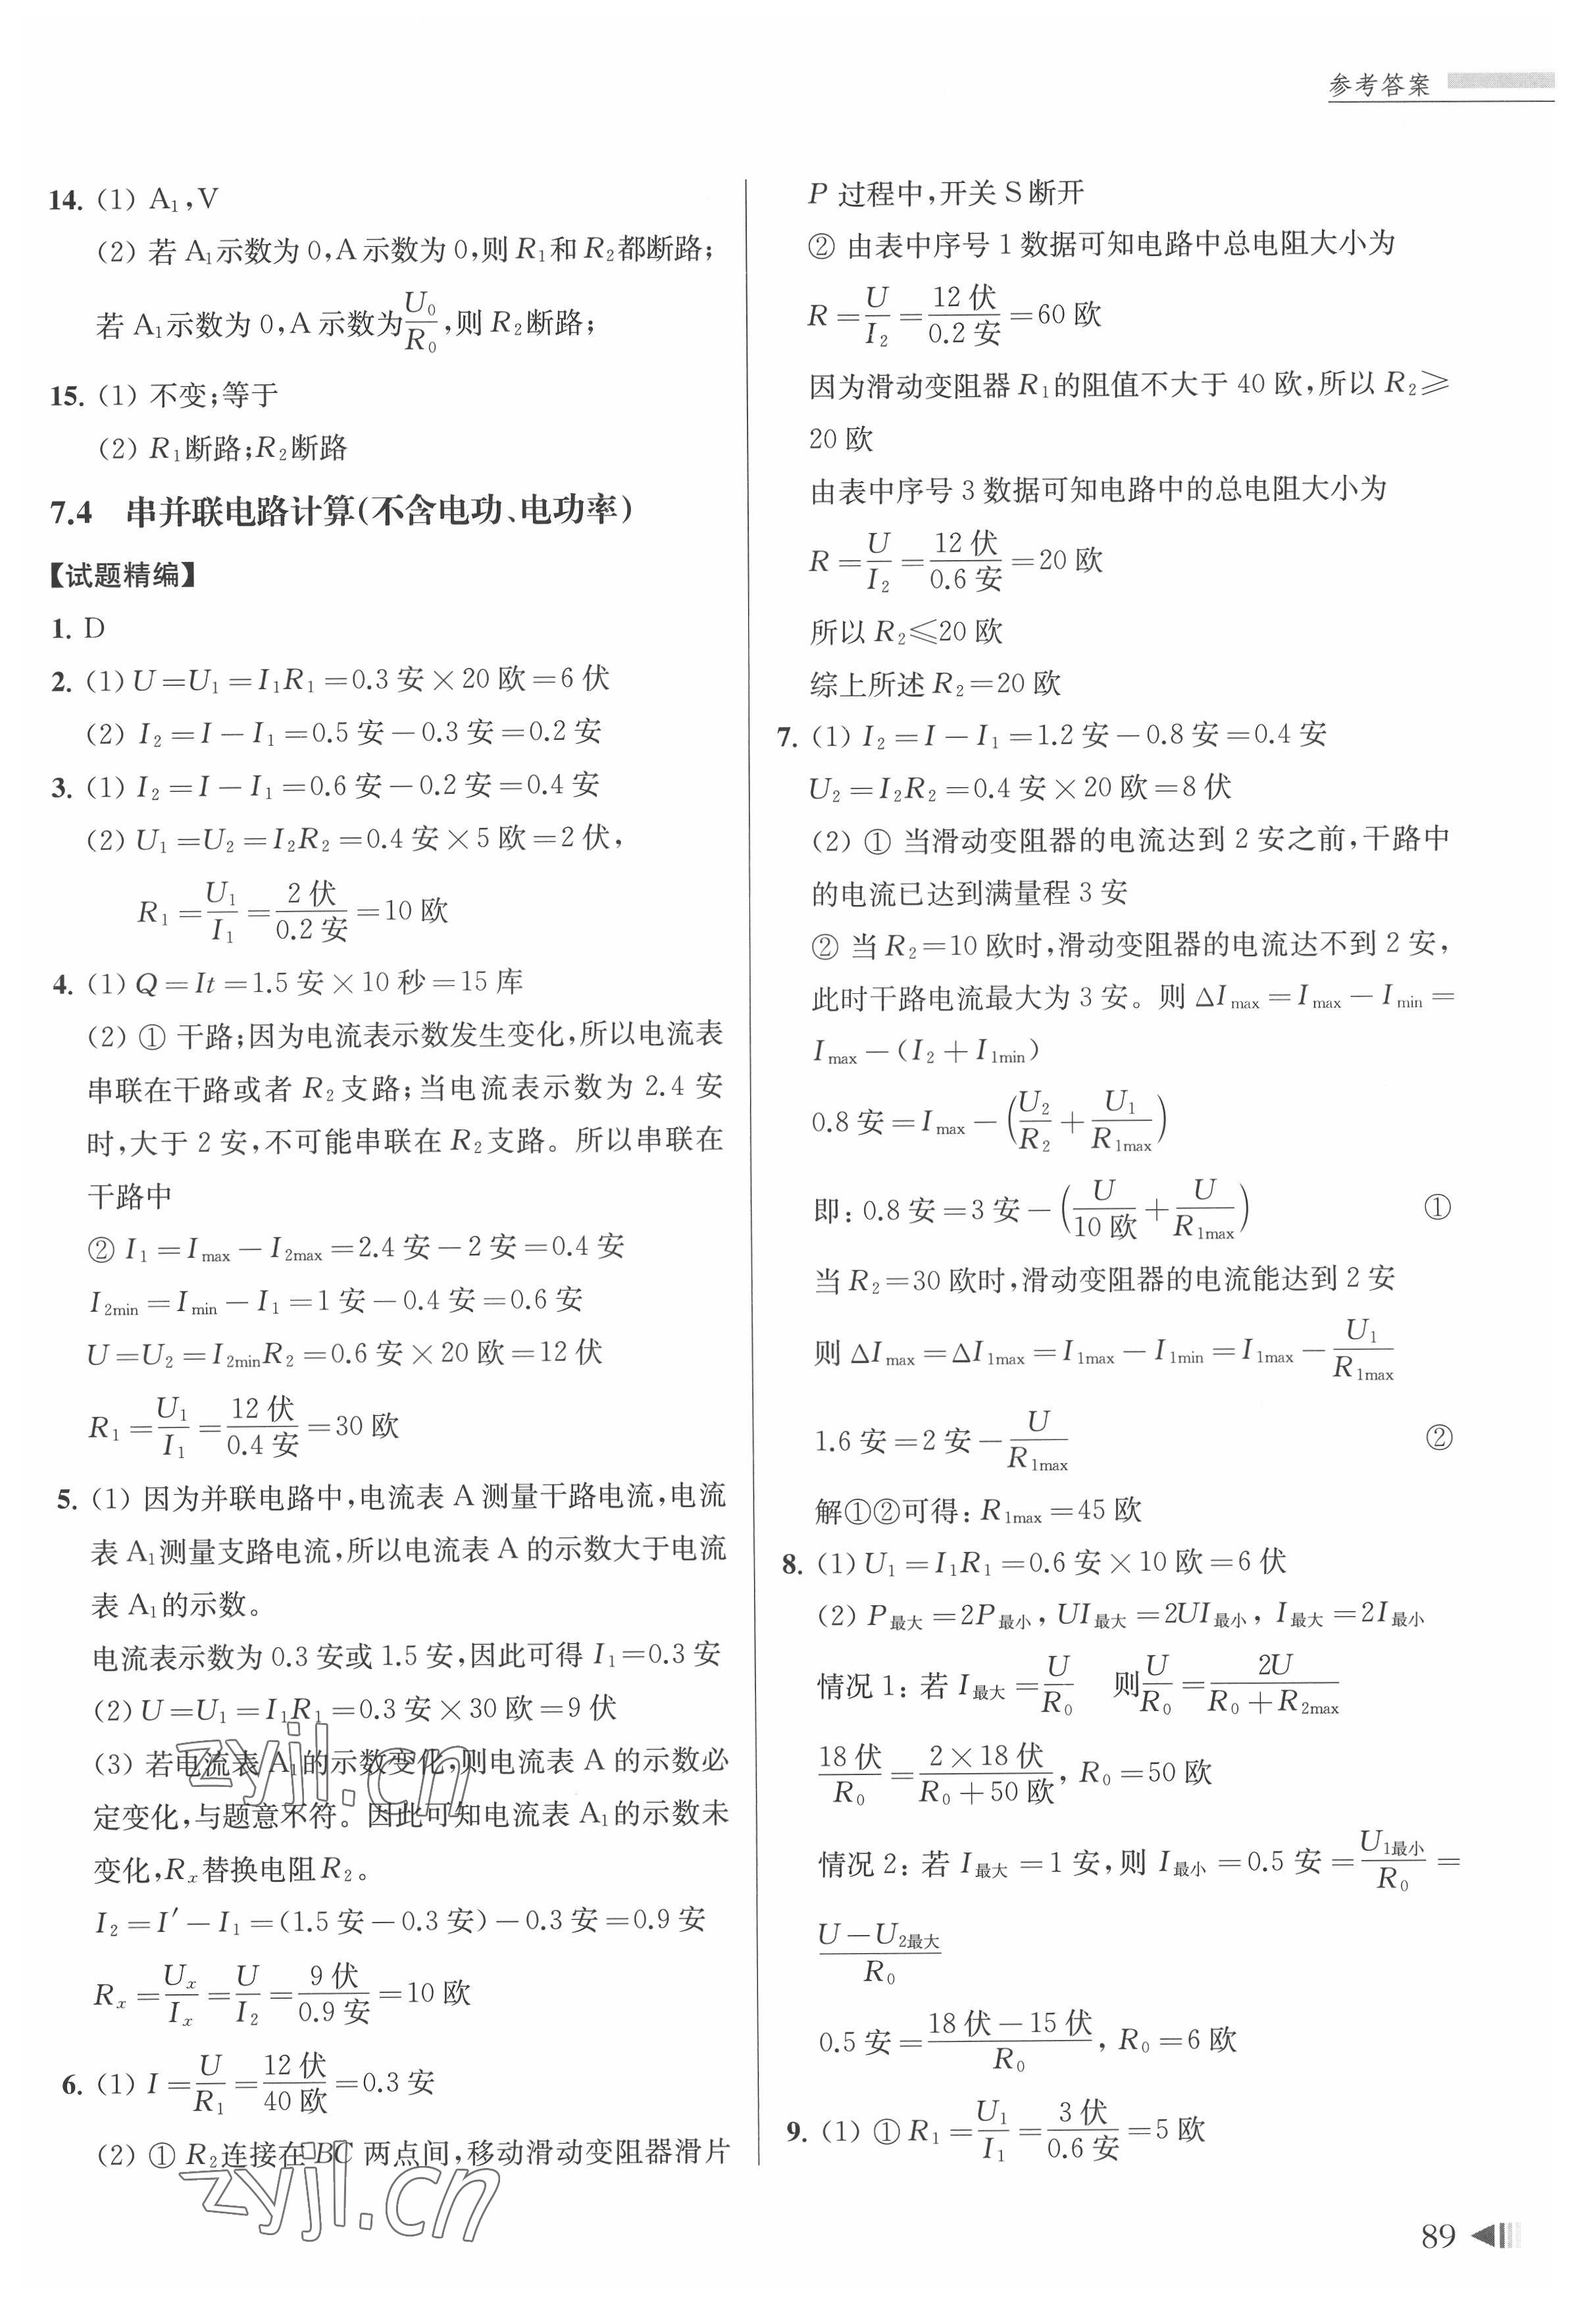 参考答案
14. (1) A₁,V
(2) 若 A₁示数为 0,A 示数为 0,则 R₁和 R₂都断路;
若 A₁示数为 0,A 示数为U₀/R₀,则 R₂断路;
15. (1) 不变;等于
(2) R₁断路;R₂断路
7.4 串并联电路计算(不含电功、电功率)
【试题精编】
1. D
2. (1) U=U₁=I₁R₁=0.3 安×20 欧=6 伏
(2) I₂=I-I₁=0.5 安-0.3 安=0.2 安
3. (1) I₂=I-I₁=0.6 安-0.2 安=0.4 安
(2) U₁=U₂=I₂R₂=0.4 安×5 欧=2 伏,
R₁=U₁/I₁=2 伏/0.2 安=10 欧
4. (1) Q=It=1.5 安×10 秒=15 库
(2) ① 干路;因为电流表示数发生变化,所以电流表
串联在干路或者 R₂支路;当电流表示数为 2.4 安
时,大于 2 安,不可能串联在 R₂支路。所以串联在
干路中
② I₁=Imax-I2max=2.4 安-2 安=0.4 安
I2min=Imin-I₁=1 安-0.4 安=0.6 安
U=U₂=I2minR₂=0.6 安×20 欧=12 伏
R₁=U₁/I₁=12 伏/0.4 安=30 欧
5. (1) 因为并联电路中,电流表 A 测量干路电流,电流
表 A₁测量支路电流,所以电流表 A 的示数大于电流
表 A₁的示数。
电流表示数为 0.3 安或 1.5 安,因此可得 I₁=0.3 安
(2) U=U₁=I₁R₁=0.3 安×30 欧=9 伏
(3) 若电流表 A₁的示数变化,则电流表 A 的示数必
定变化,与题意不符。因此可知电流表 A₁的示数未
变化,Rₓ替换电阻 R₂。
I₂=I′-I₁=(1.5 安-0.3 安)-0.3 安=0.9 安
Rₓ=Uₓ/Iₓ=U/I₂=9 伏/0.9 安=10 欧
6. (1) I=U/R₁=12 伏/40 欧=0.3 安
(2) ① R₂连接在 BC 两点间,移动滑动变阻器滑片
zyjl.cn
zyjl.cn
P 过程中,开关 S 断开
② 由表中序号 1 数据可知电路中总电阻大小为
R=U/I₂=12 伏/0.2 安=60 欧
因为滑动变阻器 R₁的阻值不大于 40 欧,所以 R₂≥
20 欧
由表中序号 3 数据可知电路中的总电阻大小为
R=U/I₂=12 伏/0.6 安=20 欧
所以 R₂≤20 欧
综上所述 R₂=20 欧
7. (1) I₂=I-I₁=1.2 安-0.8 安=0.4 安
U₂=I₂R₂=0.4 安×20 欧=8 伏
(2) ① 当滑动变阻器的电流达到 2 安之前,干路中
的电流已达到满量程 3 安
② 当 R₂=10 欧时,滑动变阻器的电流达不到 2 安,
此时干路电流最大为 3 安。则 ΔImax=Imax-Imin=
Imax-(I₂+I1min)
0.8 安=Imax-(U₂/R₂+U₁/R1max)
即:0.8 安=3 安-(U/10 欧+U/R1max) ①
当 R₂=30 欧时,滑动变阻器的电流能达到 2 安
则 ΔImax=ΔI1max=I1max-I1min=I1max-U₁/R1max
1.6 安=2 安-U/R1max ②
解①②可得:R1max=45 欧
8. (1) U₁=I₁R₁=0.6 安×10 欧=6 伏
(2) P最大=2P最小, UI最大=2UI最小, I最大=2I最小
情况 1:若 I最大=U/R₀ 则U/R₀=2U/(R₀+R2max)
18 伏/R₀=2×18 伏/(R₀+50 欧), R₀=50 欧
情况 2:若 I最大=1 安,则 I最小=0.5 安=U1最小/R₀=
(U-U2最大)/R₀
0.5 安=(18 伏-15 伏)/R₀, R₀=6 欧
9. (1) ① R₁=U₁/I₁=3 伏/0.6 安=5 欧
89